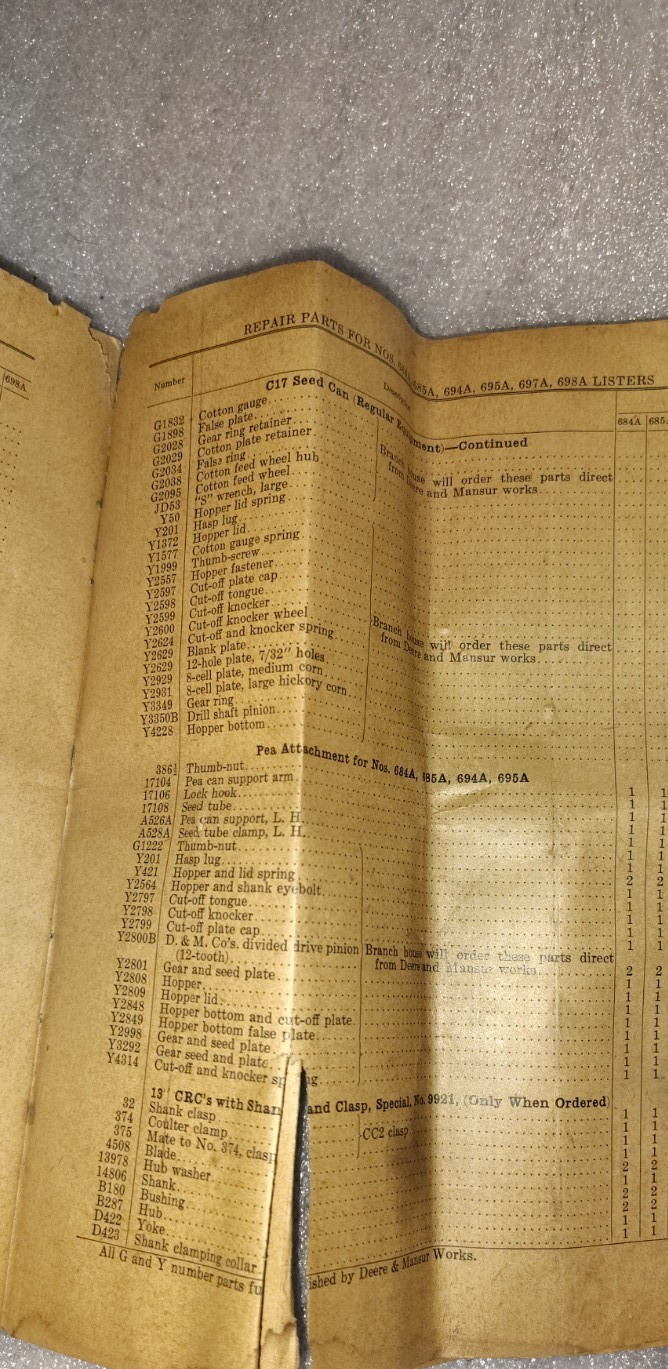 698A
REPAIR PARTS FOR NOS. 684A, 685A, 694A, 695A, 697A, 698A LISTERS
Number Description 684A 685
C17 Seed Can (Regular Equipment)—Continued
G1832 Cotton gauge
G1898 False plate
G2028 Gear ring retainer
G2029 Cotton plate retainer
G2034 False ring
G2038 Cotton feed wheel hub
G2095 Cotton feed wheel
JD53 "S" wrench, large
Branch house will order these parts direct
from Deere and Mansur works
Y50 Hopper lid spring
Y201 Hasp lug
Y1372 Hopper lid
Y1577 Cotton gauge spring
Y1999 Thumb-screw
Y2557 Hopper fastener
Y2597 Cut-off plate cap
Y2598 Cut-off tongue
Y2599 Cut-off knocker
Y2600 Cut-off knocker wheel
Y2624 Cut-off and knocker spring
Y2629 Blank plate
Y2629 12-hole plate, 7/32" holes
Y2929 8-cell plate, medium corn
Y2931 8-cell plate, large hickory corn
Y3349 Gear ring
Y3350B Drill shaft pinion
Y4228 Hopper bottom
Branch house will order these parts direct
from Deere and Mansur works
Pea Attachment for Nos. 684A, 685A, 694A, 695A
386½ Thumb-nut 1 1
17104 Pea can support arm 1 1
17106 Lock hook 1 1
17108 Seed tube 1 1
A526A Pea can support, L. H. 1 1
A528A Seed tube clamp, L. H. 1 1
G1222 Thumb-nut 1 1
Y201 Hasp lug 2 2
Y421 Hopper and lid spring 1 1
Y2564 Hopper and shank eyebolt 1 1
Y2797 Cut-off tongue 1 1
Y2798 Cut-off knocker 1 1
Y2799 Cut-off plate cap 1 1
Y2800B D. & M. Co's. divided drive pinion
(12-tooth) 2 2
Branch house will order these parts direct
from Deere and Mansur works
Y2801 Gear and seed plate 1 1
Y2808 Hopper 1 1
Y2809 Hopper lid 1 1
Y2848 Hopper bottom and cut-off plate 1 1
Y2849 Hopper bottom false plate 1 1
Y2998 Gear and seed plate 1 1
Y3292 Gear seed and plate 1 1
Y4314 Cut-off and knocker spring 1 1
13" CRC's with Shank and Clasp, Special, No. 9921, (Only When Ordered)
32 Shank clasp 1 1
374 Coulter clamp 1 1
375 Mate to No. 374, clasp 1 1
CC2 clasp
4508 Blade 1 1
13978 Hub washer 2 2
14806 Shank 1 1
B180 Bushing 2 2
B287 Hub 2 2
D422 Yoke 1 1
D423 Shank clamping collar 1 1
All G and Y number parts fu ished by Deere & Mansur Works.